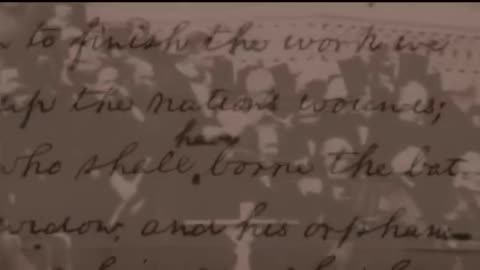 to finish the work we
up the nation's wounds;
have
who shall borne the bat
widow, and his orphan—